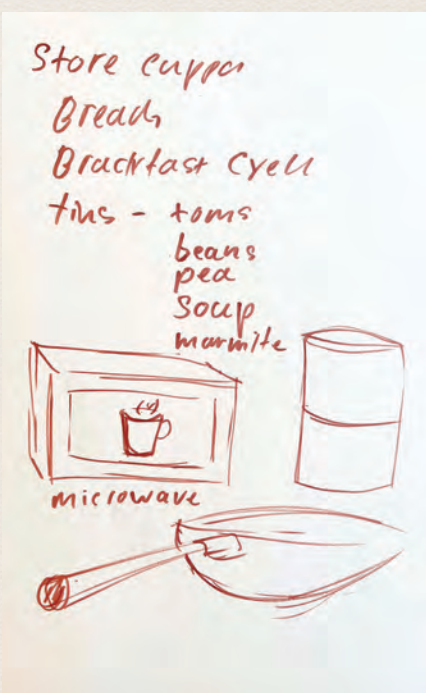 Store cuppa
Bread
Brackfast Cyell
tins - toms
beans
pea
soup
marmite
microwave